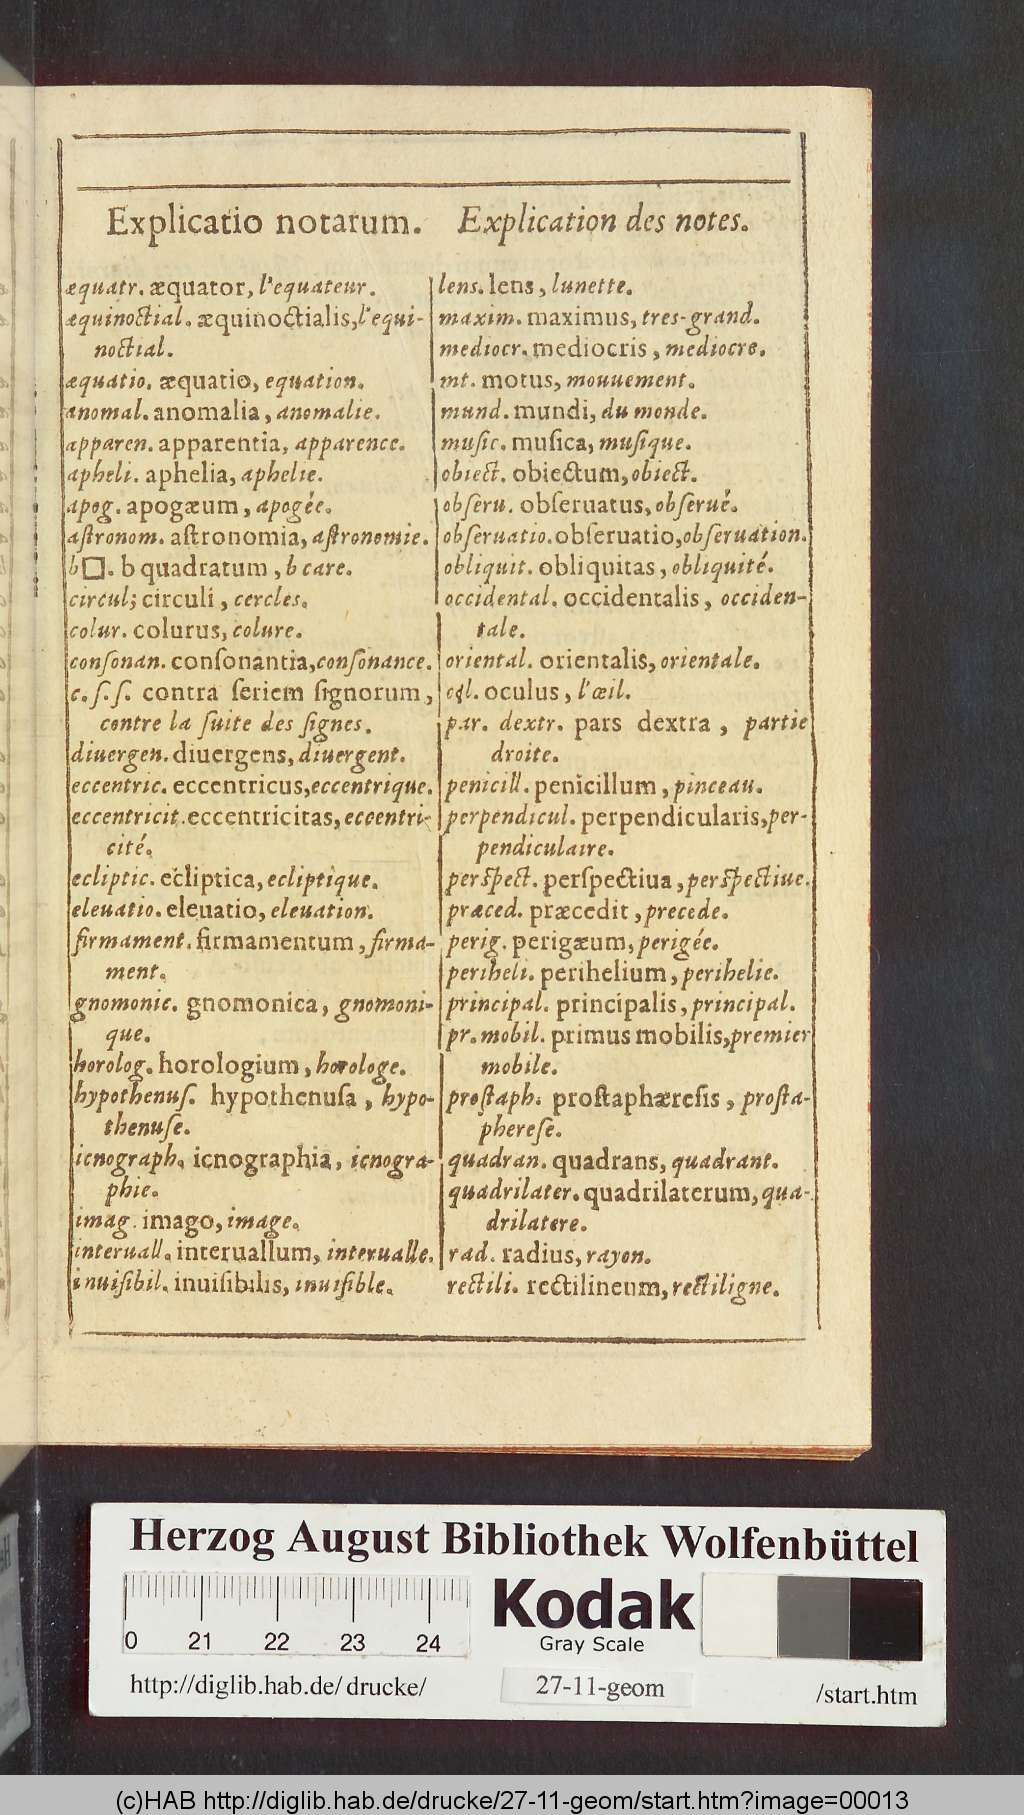 Explicatio notarum. Explication des notes.
æquatr. æquator, l'equateur.
æquinoctial. æquinoctialis, l'equi-
noctial.
æquatio. æquatio, equation.
anomal. anomalia, anomalie.
apparen. apparentia, apparence.
apheli. aphelia, aphelie.
apog. apogæum, apogée.
aſtronom. aſtronomia, aſtronomie.
b□. b quadratum, b care.
circul; circuli, cercles.
colur. colurus, colure.
conſonan. conſonantia, conſonance.
c. ſ. ſ. contra ſeriem ſignorum,
contre la ſuite des ſignes.
diuergen. diuergens, diuergent.
eccentric. eccentricus, eccentrique.
eccentricit. eccentricitas, eccentri-
cité.
ecliptic. ecliptica, ecliptique.
eleuatio. eleuatio, eleuation.
firmament. firmamentum, firma-
ment.
gnomonic. gnomonica, gnomoni-
que.
horolog. horologium, horologe.
hypothenuſ. hypothenuſa, hypo-
thenuſe.
icnograph. icnographia, icnogra-
phie.
imag. imago, image.
interuall. interuallum, interualle.
inuiſibil. inuiſibilis, inuiſible.
lens. lens, lunette.
maxim. maximus, tres-grand.
mediocr. mediocris, mediocre.
mt. motus, mouuement.
mund. mundi, du monde.
muſic. muſica, muſique.
obiect. obiectum, obiect.
obſeru. obſeruatus, obſerué.
obſeruatio. obſeruatio, obſeruation.
obliquit. obliquitas, obliquité.
occidental. occidentalis, occiden-
tale.
oriental. orientalis, orientale.
ocl. oculus, l'œil.
par. dextr. pars dextra, partie
droite.
penicill. penicillum, pinceau.
perpendicul. perpendicularis, per-
pendiculaire.
perſpect. perſpectiua, perſpectiue.
præced. præcedit, precede.
perig. perigæum, perigée.
periheli. perihelium, perihelie.
principal. principalis, principal.
pr. mobil. primus mobilis, premier
mobile.
proſtaph. proſtaphæreſis, proſta-
phereſe.
quadran. quadrans, quadrant.
quadrilater. quadrilaterum, qua-
drilatere.
rad. radius, rayon.
rectili. rectilineum, rectiligne.
Herzog August Bibliothek Wolfenbüttel
0 21 22 23 24
Kodak
Gray Scale
http://diglib.hab.de/ drucke/
27-11-geom
/start.htm
(c)HAB http://diglib.hab.de/drucke/27-11-geom/start.htm?image=00013